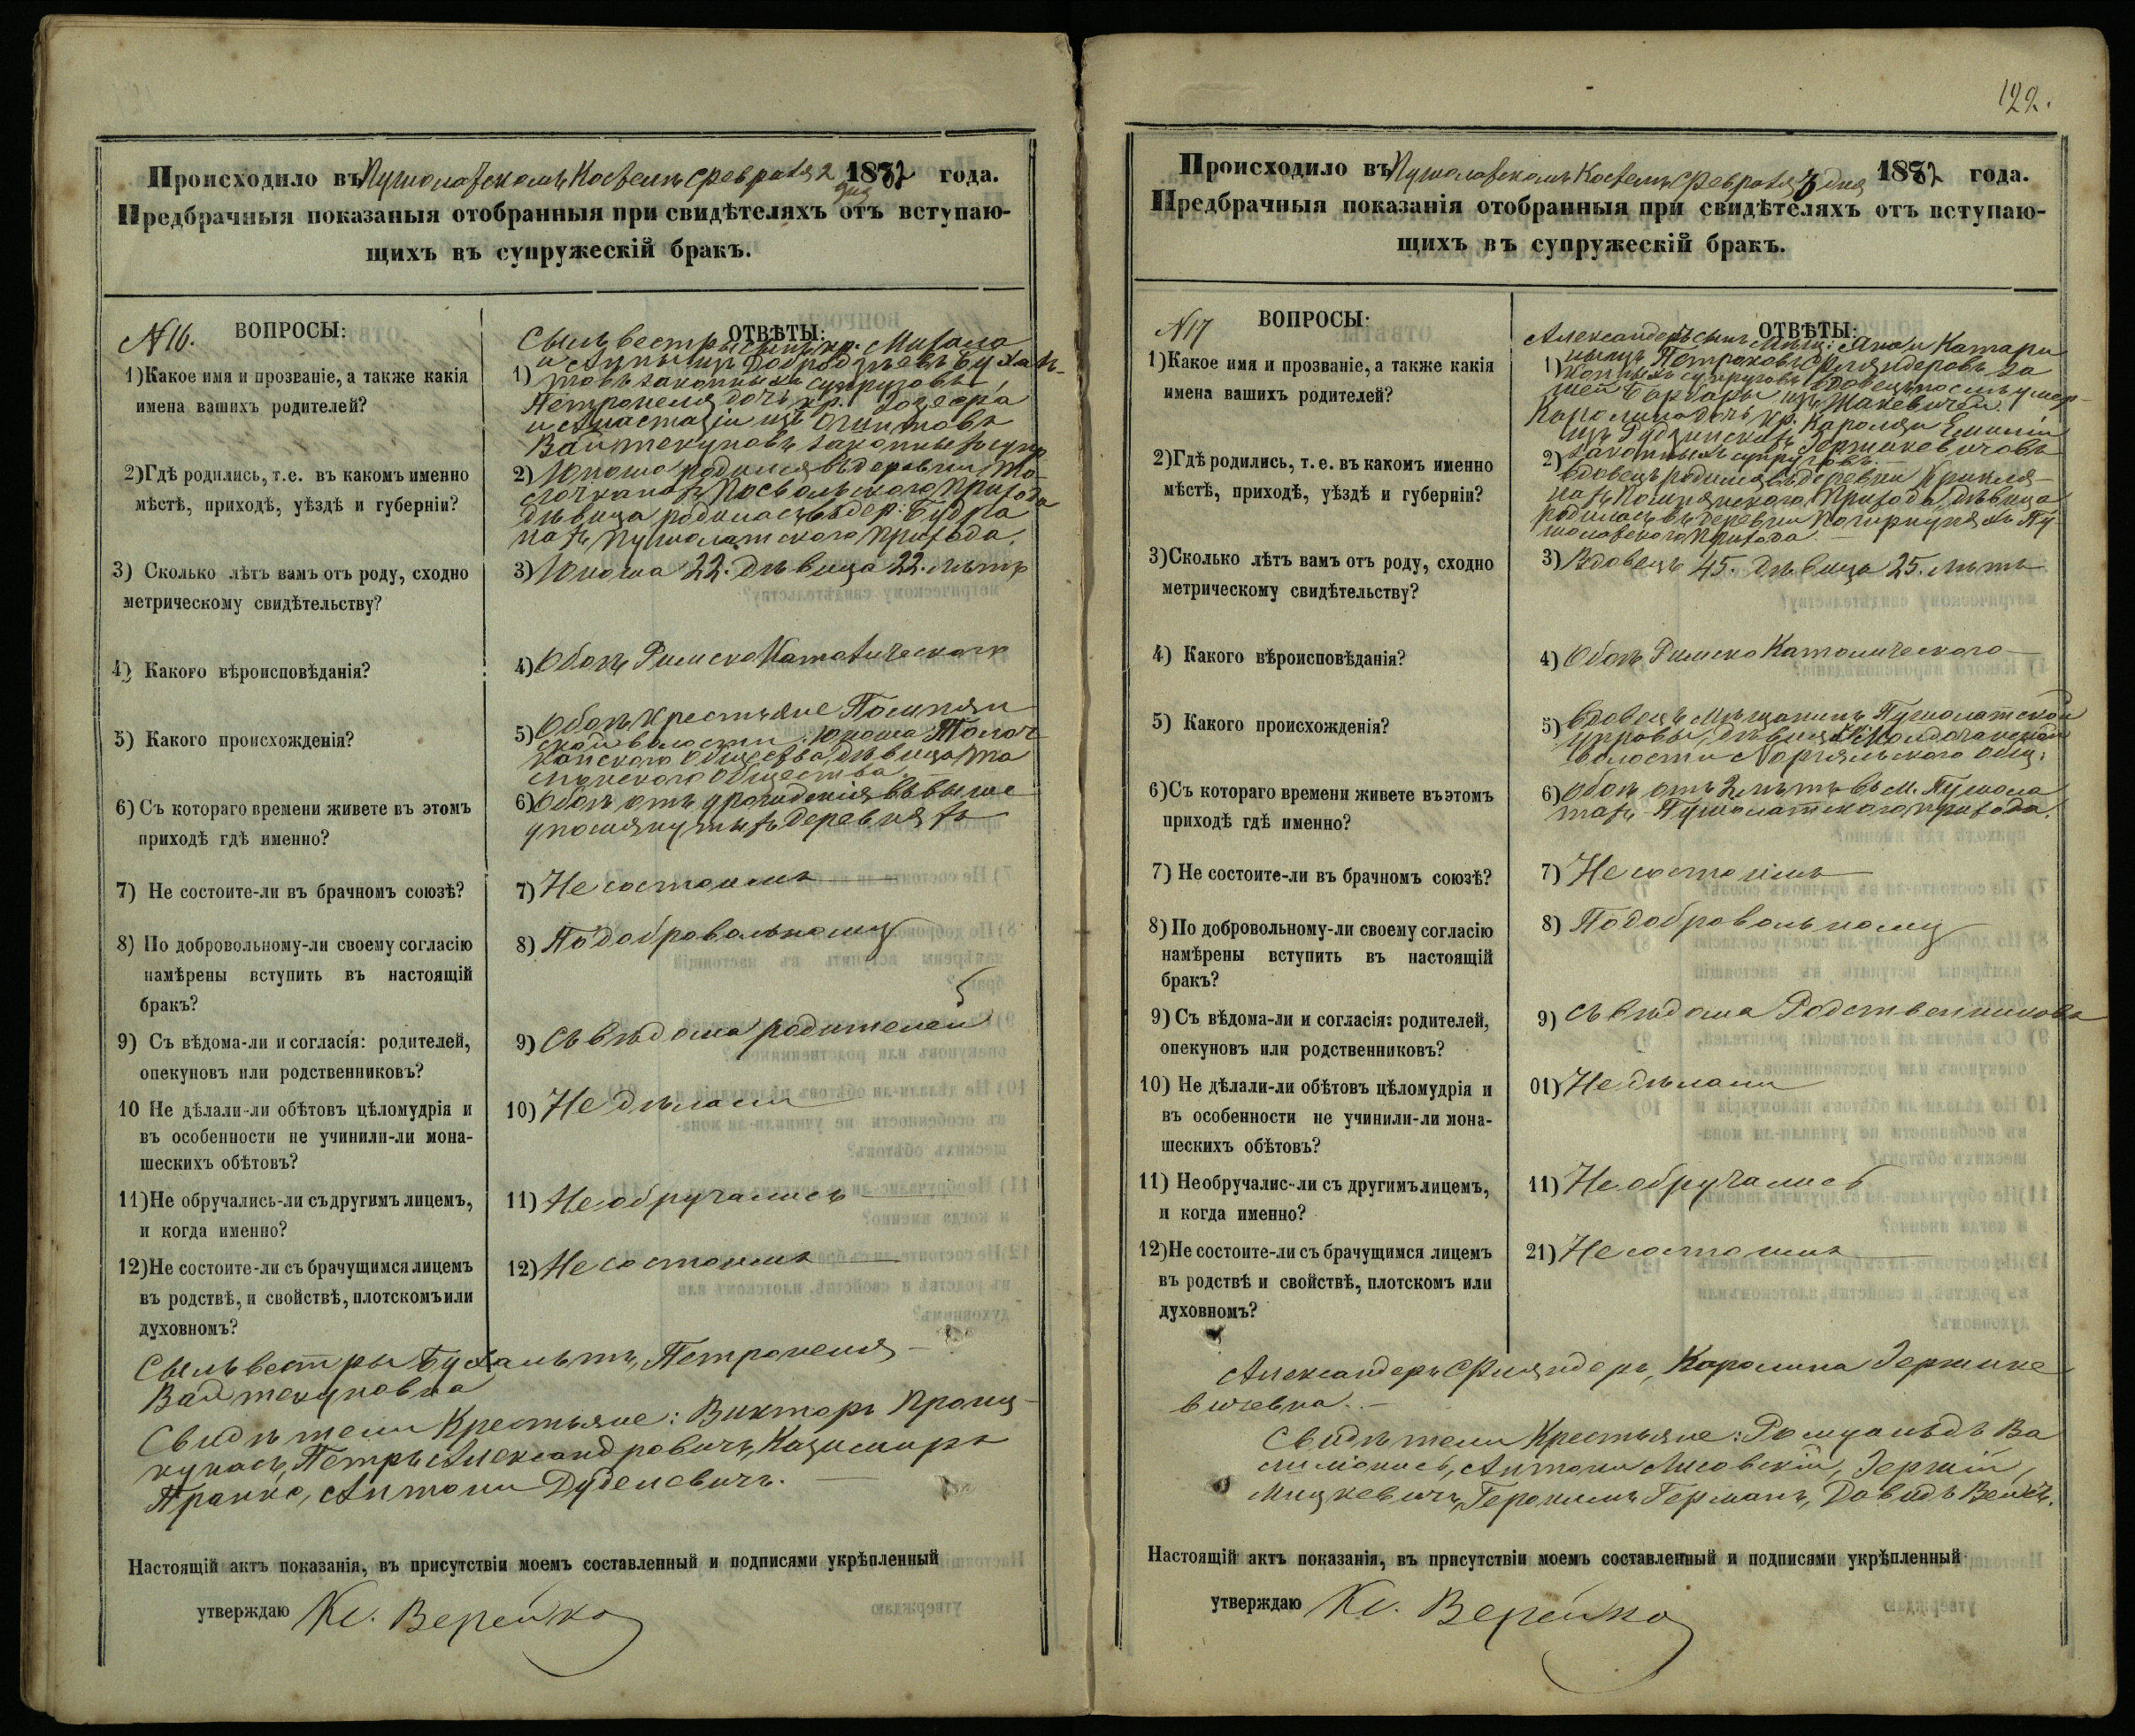 Происходило въ Пушолатскомъ Костелѣ Февраля 2 дня 1882 года.
Предбрачныя показаныя отобранныя при свидѣтеляхъ отъ вступаю-
щихъ въ супружескій бракъ.
№16. ВОПРОСЫ:
1) Какое имя и прозваніе, а также какія
имена вашихъ родителей?
2) Гдѣ родились, т.е. въ какомъ именно
мѣстѣ, приходѣ, уѣздѣ и губерніи?
3) Сколько лѣтъ вамъ отъ роду, сходно
метрическому свидѣтельству?
4) Какого вѣроисповѣданія?
5) Какого происхожденія?
6) Съ котораго времени живете въ этомъ
приходѣ гдѣ именно?
7) Не состоите-ли въ брачномъ союзѣ?
8) По добровольному-ли своему согласію
намѣрены вступить въ настоящій
бракъ?
9) Съ вѣдома-ли и согласія: родителей,
опекуновъ или родственниковъ?
10 Не дѣлали-ли обѣтовъ цѣломудрія и
въ особенности не учинили-ли мона-
шескихъ обѣтовъ?
11) Не обручались-ли съ другимъ лицемъ,
и когда именно?
12) Не состоите-ли съ брачущимся лицемъ
въ родствѣ, и свойствѣ, плотскомъ или
духовномъ?
ОТВѢТЫ:
Сыльвестры сынъ кр. Михала
1) товъ законныхъ супруговъ,
Петронеля дочь кр. Іозефа
и Анастазіи изъ
Вайтекуновъ законныхъ супр
2) Юноша родился въ деревни
Посвольского Прихода
дѣвица родилась въ дер: Будра
нахъ Пушолатского Прихода.
3) Юноша 22. Дѣвица 22. лѣтъ
4) Обоихъ Римско Католического
5) Обоихъ Крестьяне Помпян
ской волости. Юноша Толоч
канского Общества, дѣвица
Общества.
6) Обоихъ отъ урожденія въ выше
упомянутыхъ деревняхъ
7) Не состоимъ
8) По добровольному
9) Съ вѣдома родителей
10) Не дѣлали
11) Не обручались
12) Не состоимъ
Сыльвестры Бухальтъ, Петронеля
Вайтекуновна
Свидѣтели Крестьяне: Викторъ Прону-
кунасъ, Петръ Александровичъ, Казимиръ
Пранко, Антони Дуделевичъ.
Настоящій актъ показанія, въ присутствіи моемъ составленный и подписями укрѣпленный
утверждаю Кс. Верейко
122.
Происходило въ Пушолатскомъ Костелѣ Февраля 3 дня 1882 года.
Предбрачныя показанія отобранныя при свидѣтеляхъ отъ вступаю-
щихъ въ супружескій бракъ.
№17 ВОПРОСЫ:
1) Какое имя и прозваніе, а также какія
имена вашихъ родителей?
2) Гдѣ родились, т.е. въ какомъ именно
мѣстѣ, приходѣ, уѣздѣ и губерніи?
3) Сколько лѣтъ вамъ отъ роду, сходно
метрическому свидѣтельству?
4) Какого вѣроисповѣданія?
5) Какого происхожденія?
6) Съ котораго времени живете въ этомъ
приходѣ гдѣ именно?
7) Не состоите-ли въ брачномъ союзѣ?
8) По добровольному-ли своему согласію
намѣрены вступить въ настоящій
бракъ?
9) Съ вѣдома-ли и согласія: родителей,
опекуновъ или родственниковъ?
10) Не дѣлали-ли обѣтовъ цѣломудрія и
въ особенности не учинили-ли мона-
шескихъ обѣтовъ?
11) Необручалис-ли съ другимъ лицемъ,
и когда именно?
12) Не состоите-ли съ брачущимся лицемъ
въ родствѣ и свойствѣ, плотскомъ или
духовномъ?
ОТВѢТЫ:
Александеръ сынъ Мѣщ: Яна и Катари
1) ны изъ Петраховъ Фляндеровъ за
конныхъ супруговъ вдовецъ послѣ умер-
шей Барбары изъ Жакевичей.
Каролина дочь кр. Кароля и Емиліи
изъ Рудзинскихъ Гержикевичовъ
2) законныхъ супруговъ.
вдовецъ родился въ деревни Крикля-
нахъ Помпянского Прихода, дѣвица
родилась въ деревни Пу
шолатского Прихода
3) Вдовецъ 45. Дѣвица 25. лѣтъ
4) Обоихъ Римско Католического
5) Вдовецъ Мѣщанинъ Пушолатской
управы, дѣвица
волости общ:
6) Обоихъ отъ 2 лѣтъ въ М. Пушола
тахъ Пушолатского прихода.
7) Не состоимъ
8) По добровольному
9) Съ вѣдома Родственниковъ
01) Не дѣлали
11) Не обручались
21) Не состоимъ
Александеръ Фляндеръ, Каролина Гержике
вичевна.
Свидѣтели Крестьяне: Ромуальдъ Ва
Антони Лисовскій, Гержій,
Мицкевичъ, Геронимъ Германъ, Давидъ Вейсъ.
Настоящій актъ показанія, въ присутствіи моемъ составленный и подписями укрѣпленный
утверждаю Кс. Верейко